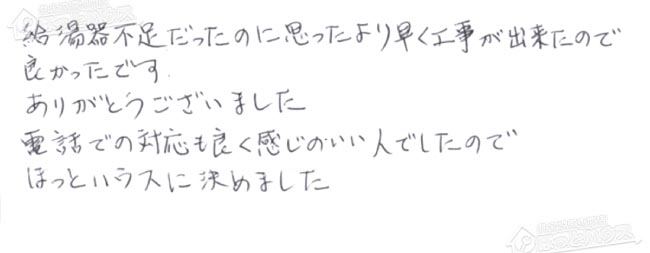 給湯器不足だったのに思ったより早く工事が出来たので
良かったです.
ありがとうございました
電話での対応も良く感じのいい人でしたので
ほっとハウスに決めました
ほっとハウス